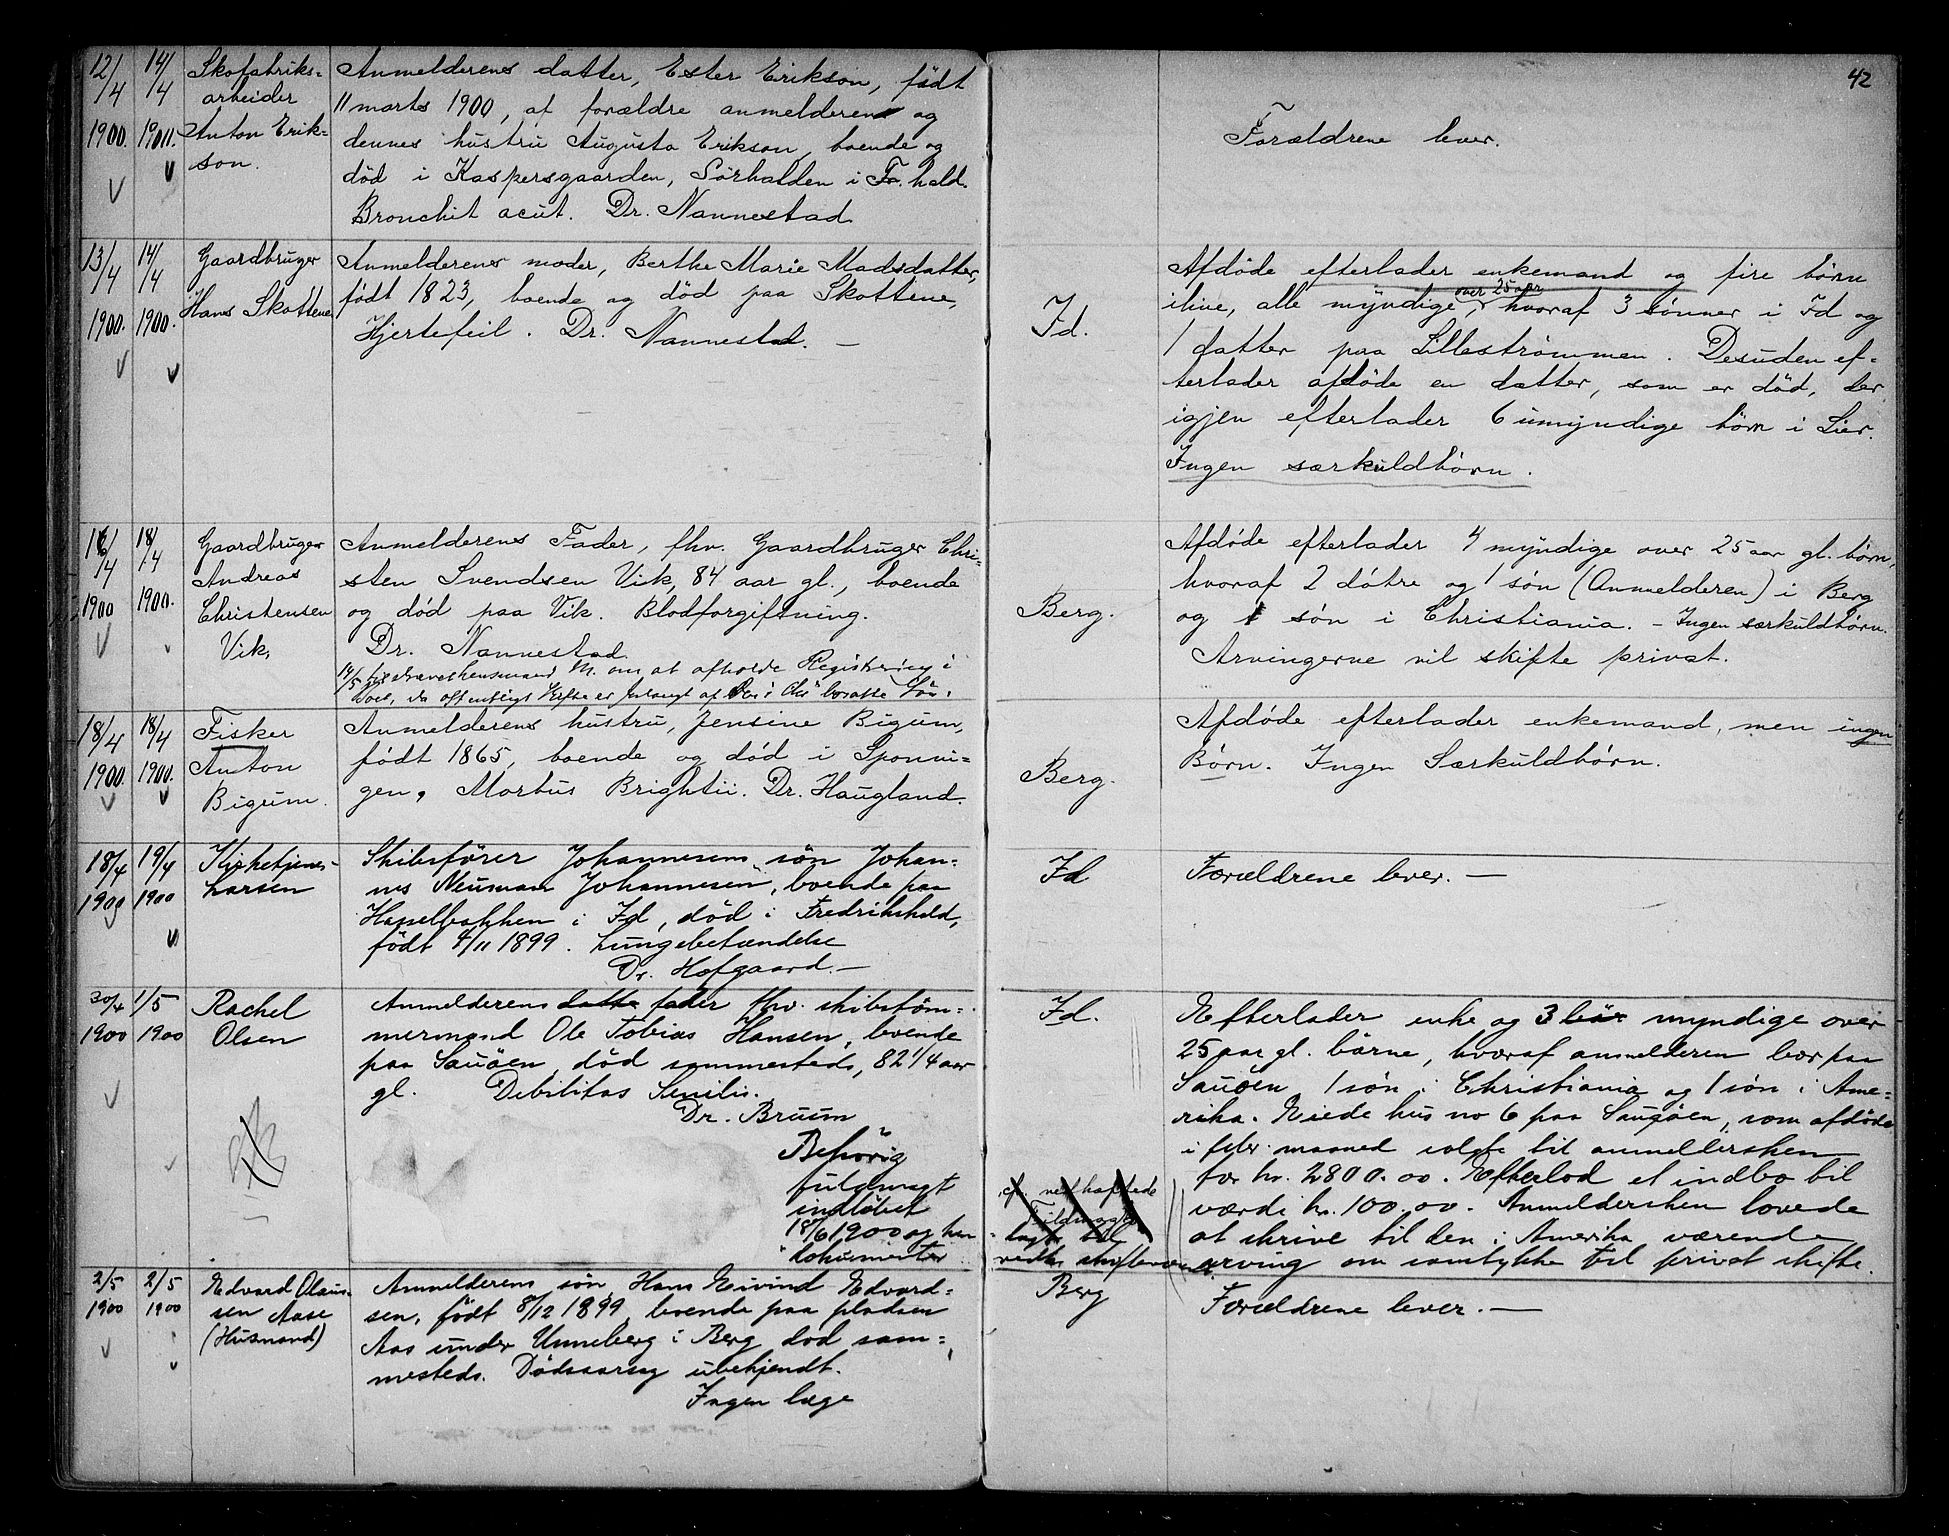 42
12/4 1900. 14/4 1900.
Skofabriks=
arbeider
Anton Erik=
son.
Anmelderens datter, Ester Erikson, født
11 marts 1900, af forældre anmelderen og
dennes hustru Augusta Erikson, boende og
død i Kaspersgaarden, Sørhalden i Fr.hald.
Bronchit acut. Dr. Nannestad
Forældrene lever.
13/4 1900. 14/4 1900.
Gaardbruger
Hans Skottene
Anmelderens moder, Berthe Marie Madsdatter,
født 1823, boende og død paa Skottene,
Hjertefeil. Dr. Nannestad. —
Id.
Afdøde efterlader enkemand og fire børn
ilive, alle myndige, over 25 aar hvoraf 3 sønner i Id og
1 datter paa Lillestrømmen. Desuden ef=
terlader afdøde en datter, som er død, der
igjen efterlader 6 umyndige børn i Lier.
Ingen særkuldbørn.
16/4 1900 18/4 1900.
Gaardbruger
Andreas
Christensen
Vik,
Anmelderens Fader, fhv. Gaardbruger Chri=
sten Svendsen Vik, 84 aar gl., boende
og død paa Vik. Blodforgiftning.
Dr. Nannestad
14/5 lensmand M. om at afholde Registrering i
Boet, da offentligt Skifte er forlangt af den i
Berg.
Afdøde efterlader 4 myndige over 25 aar gl. børn,
hvoraf 2 døtre og 1 søn (Anmelderen) i Berg
og 1 søn i Christiania. – Ingen særkuldbørn.
Arvingerne vil skifte privat.
18/4 1900. 18/4 1900.
Fisker
Anton
Bigum.
Anmelderens hustru, Jensine Bigum,
født 1865, boende og død i Sponvi=
gen, Morbus Brightii. Dr. Haugland.
Berg.
Afdøde efterlader enkemand, men ingen
Børn. Ingen Særkuldbørn.
18/4 1900 19/4 1900
Kirketjener
Larsen
Skibsfører Johannesens søn Johan=
nes Neuman Johannesen, boende paa
Hasselbakken i Id, død i Fredrikshald,
født 4/11 1899. Lungebetændelse
Dr. Hofgaard. —
Id
Forældrene lever. —
30/4 1900 1/5 1900
Rachel
Olsen
Anmelderens datte fader fhv. skibstøm=
mermand Ole Tobias Hansen, boende
paa Sauøen, død sammesteds, 82 1/4 aar
gl. Debilitas Senilis.
Dr. Bruum
Behørig
fuldmagt
indløbet
18/6 1900 og
dokumenter
Id.
cfr. vedhæftede
Fuldmagt
Efterlader enke og 3 bør myndige over
25 aar gl. børne, hvoraf anmelderen bor paa
Sauøen, 1 søn i Christiania og 1 søn i Ame=
rika. Eiede hus no 6 paa Saugøen, som afdøde
i febr. maaned solgte til anmeldersken
for kr. 2800.00. Efterlod et indbo til
værdi kr. 100.00. Anmeldersken lovede
at skrive til den i Amerika værende
arving om samtykke til privat skifte.
2/5 1900 2/5 1900
Edvard Olaus=
sen Aase
(Husmand)
Anmelderens søn Hans Eivind Edvard=
sen, født 8/12 1899, boende paa pladsen
Aas under Unneberg i Berg død sam=
mesteds. Dødsaarsag ubekjendt.
Ingen læge
Berg
Forældrene lever. —